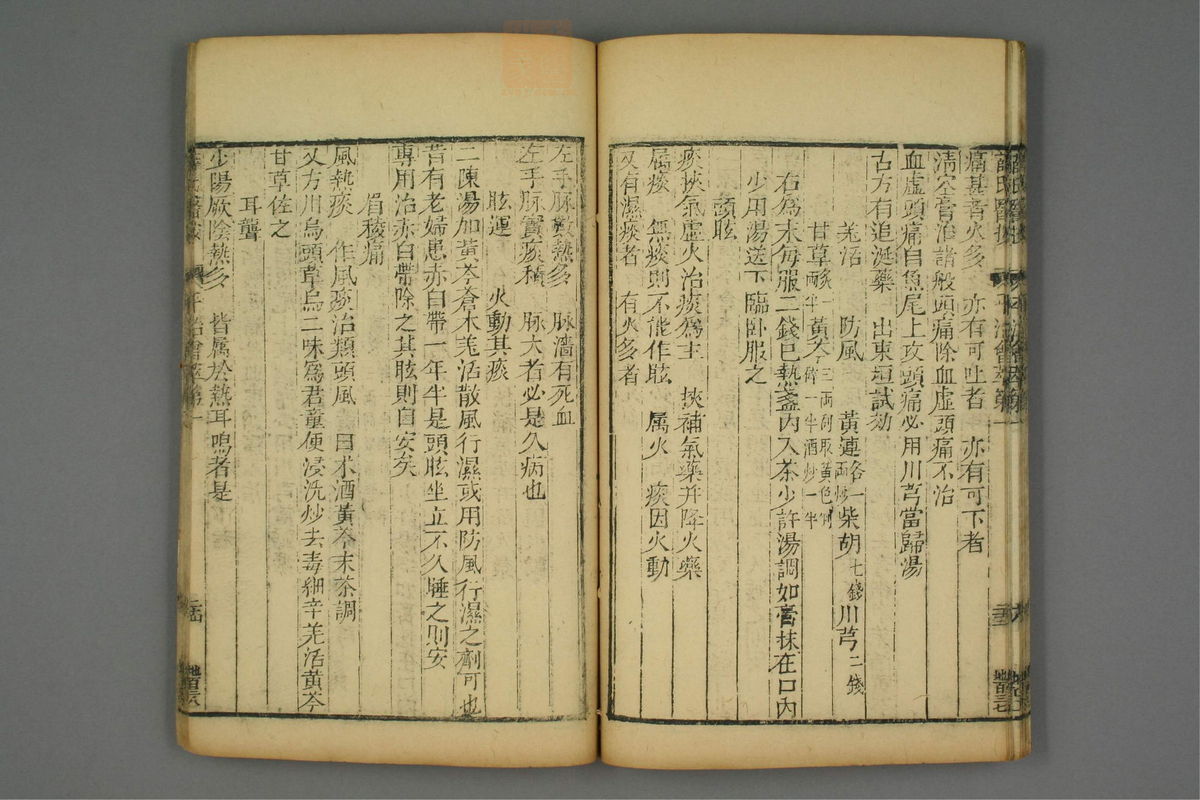 痛甚者火多　亦有可吐者　亦有可下者
清空膏治諸般頭痛除血虛頭痛不治
血虛頭痛自魚尾上攻頭痛必用川芎當歸湯
古方有追涎藥　出東垣試効
羗活　防風　黃連各一兩炒　柴胡七錢　川芎二錢
甘草炙一兩半　黃芩三兩刮取黃色剉碎一半酒炒一半
右為末每服二錢匕熱盞內入茶少許湯調如膏抹在口內
少用湯送下臨卧服之
頭眩
痰挾氣虛火治痰為主　挾補氣藥并降火藥
属痰　無痰則不能作眩　属火　痰因火動
又有濕痰者　有火多者
左手脉數熱多　脉濇有死血
左手脉實痰積　脉大者必是久病也
眩運　火動其痰
二陳湯加黃芩蒼木羗活散風行濕或用防風行濕之劑可也
昔有老婦患赤白帶一年半是頭眩坐立不久睡之則安
專用治赤白帶除之其眩則自安矣
眉稜痛
風熱痰　作風痰治類頭風　白术酒黃芩末茶調
又方川烏頭草烏二味為君童便浸洗炒去毒細辛羗活黃芩
甘草佐之
耳聾
少陽厥陰熱多　皆属於熱耳鳴者是